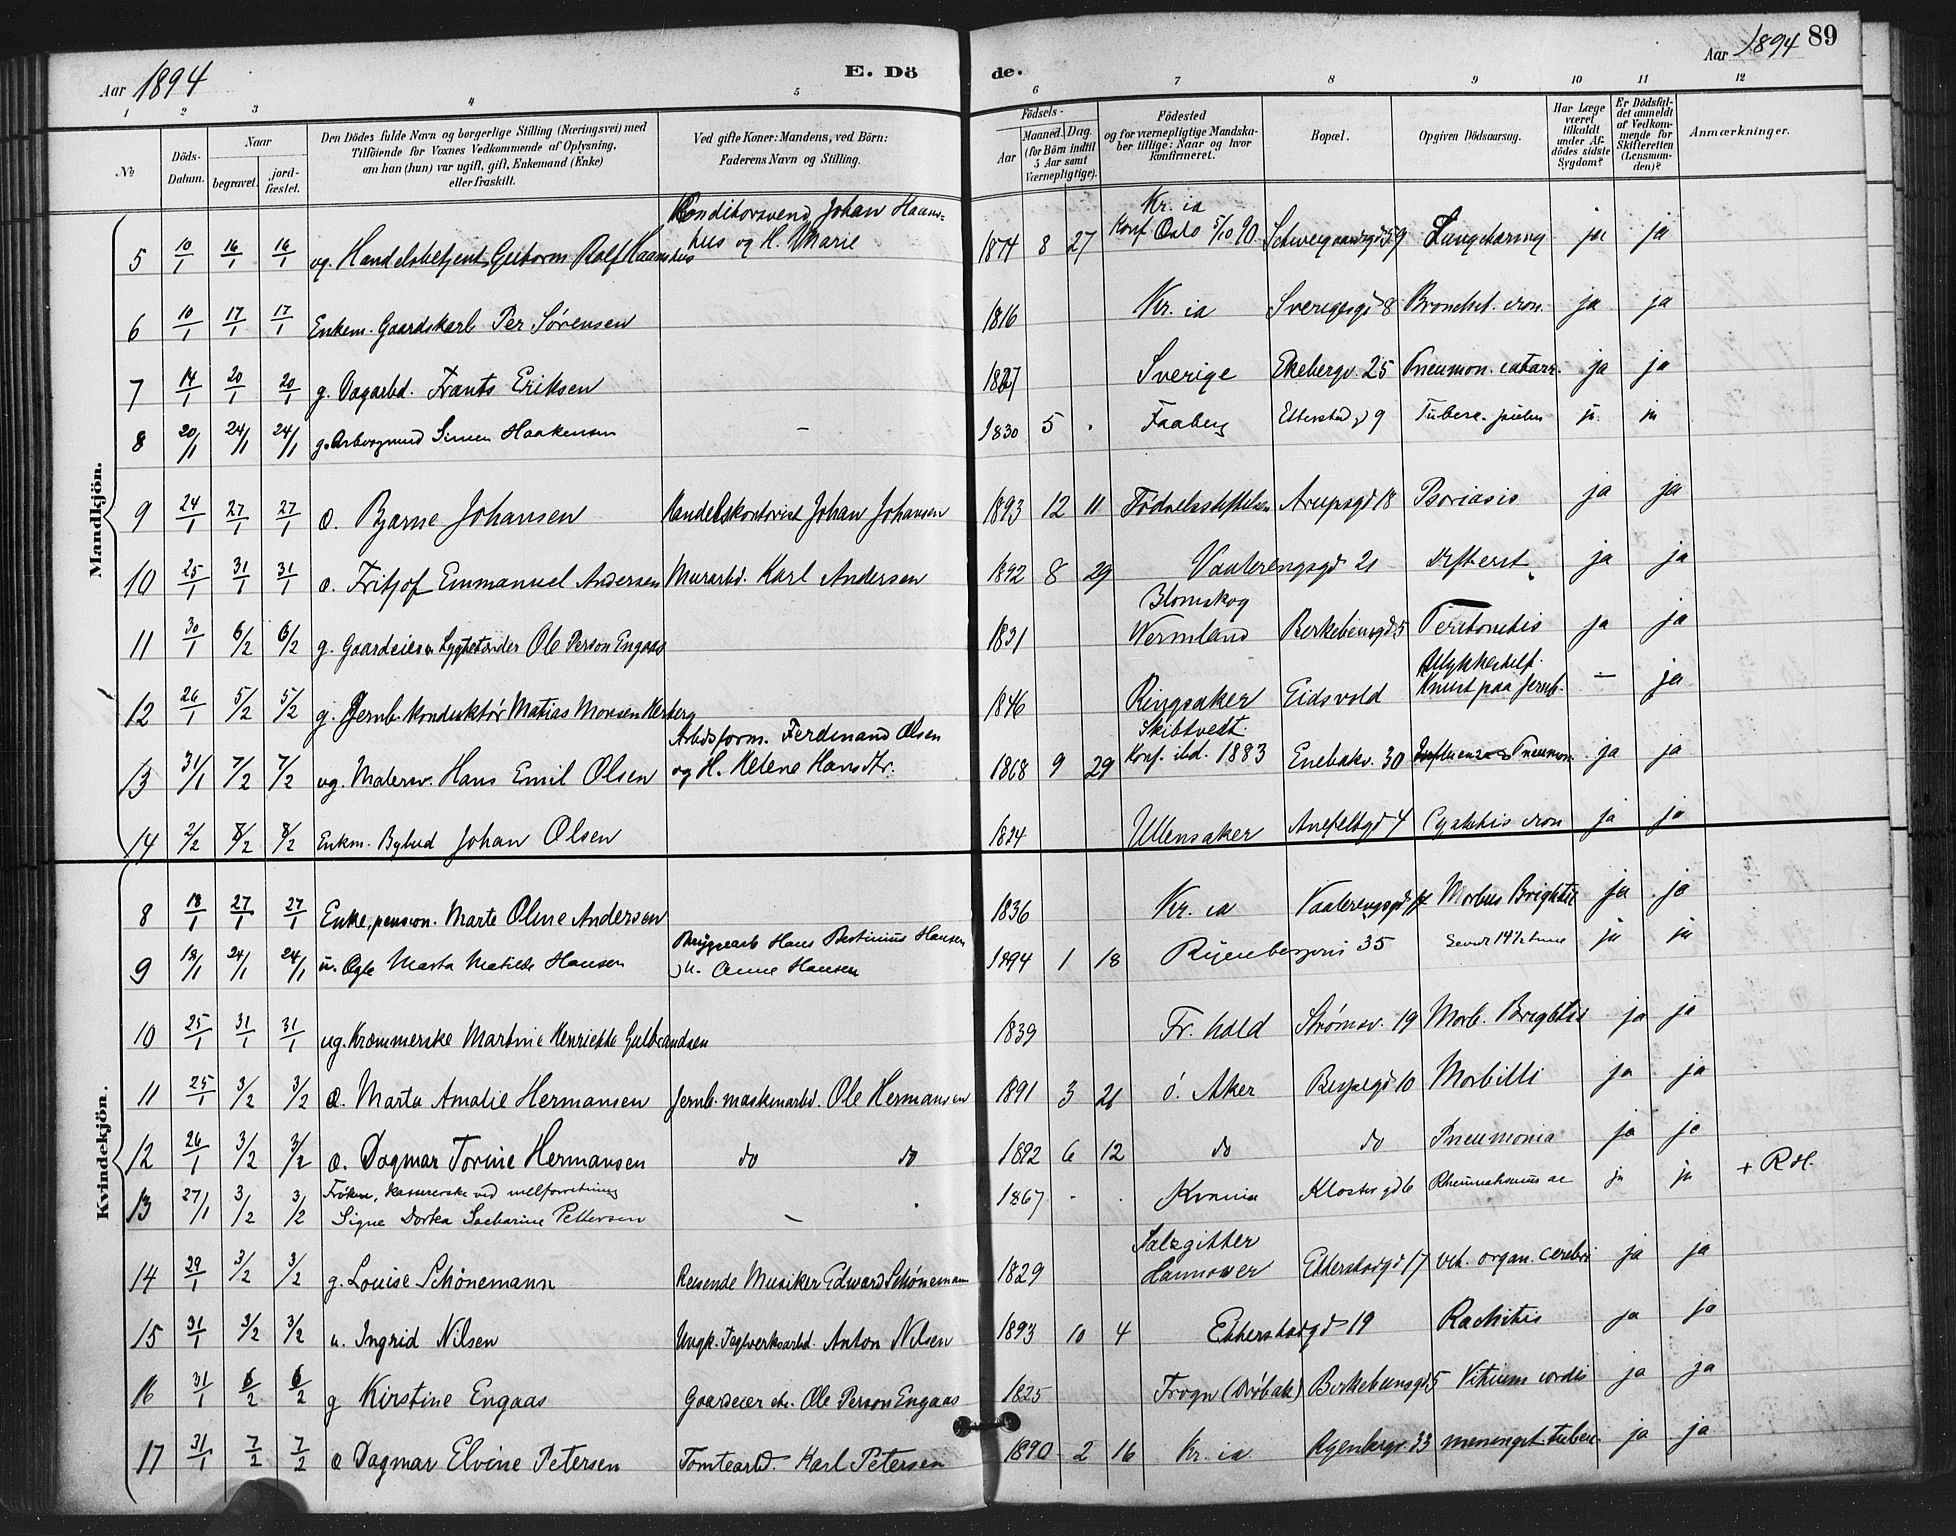 Aar 1894
E. Dö
de.
Aar 1894
89
1 2 3 4 5 6 7 8 9 10 11 12
No
Döds-Datum.
Naar
begravet.
jord-fæstet.
Den Dödes fulde Navn og borgerlige Stilling (Næringsvei) med
Tilföiende for Voxnes Vedkommende af Oplysning,
om han (hun) var ugift, gift, Enkemand (Enke)
eller fraskilt.
Ved gifte Koner: Mandens, ved Börn:
Faderens Navn og Stilling.
Födsels-
Aar
Maaned. Dag.
(for Börn indtil
5 Aar samt
Værnepligtige).
Födested
og for værnepligtige Mandska-
ber tillige: Naar og hvor
konfirmeret.
Bopæl.
Opgiven Dödsaarsag.
Har Læge
været
tilkaldt
under Af-
dödes sidste
Sygdom?
Er Dödsfal-
det anmeldt
af Vedkom-
mende for
Skifteretten
(Lensman-
den)?
Anmærkninger.
Mandkjön.
Konditorsvend Johan Haans-
Kr. ia
5 10/1 16/1 16/1 ug. Handelsbetjent Guttorm Rolf Haanshus hus og H. Marie 1874 8 27 Konf Oslo 5/10 90 Schweigaardsgd 59 Lungetæring ja ja
6 10/1 17/1 17/1 Enkem. Gaardskarl Per Sørensen 1816 Kr. ia Sverigesgd 8 Bronchit. cron. ja ja
7 14/1 20/1 20/1 g. Dagarbd. Frants Eriksen 1827 Sverige Ekebergv. 25 Pneumon. catarr. ja ja
8 20/1 24/1 24/1 g. Simen Haakensen - 1830 5 . Faaberg Etterstad g 9 Tuberc. ja ja
9 24/1 27/1 27/1 æ. Bjarne Johansen Handelskontorist Johan Johansen 1893 12 11 Fødselsstiftelsen Arupsgd 18 Psoriasis ja ja
10 25/1 31/1 31/1 æ. Fritjof Emmanuel Andersen Murarbd. Karl Andersen 1892 8 29 Vaalerengsgd 21 Difterit ja ja
Blomskog
11 30/1 6/2 6/2 g. Gaardeier & Lygtetænder Ole Person Engaas 1831 Wermland Birkebeinergd 5 Peritonitis ja ja
Ulykkestilf.
12 26/1 5/2 5/2 g. Jernb. Konduktør Matias Monsen Kerberg 1846 Ringsaker Eidsvold Knust paa Jernb. - ja
Arbdsform. Ferdinand Olsen
Skibtvedt
13 31/1 7/2 7/2 ug. Malersv. Hans Emil Olsen og H. Helene Hans dtr. 1868 9 29 Konf. ibd. 1883 Enebakv. 30 Influenza & Pneumon. ja ja
14 2/2 8/2 8/2 Enkm. Bybud Johan Olsen 1824 Ullensaker Anefeltsgd 4 Cystitis cron ja ja
Kvindekjön.
8 18/1 27/1 27/1 Enke, pension. Marte Oline Andersen 1836 Kr. ia Vaalerengsgd Morbus Brightii ja ja
Bryggearb Hans Bertinius Hansen
9 18/1 24/1 24/1 u. Ægte Marta Matilde Hansen H. Anne Hansen 1894 1 18 Ryenbergveis 35 Levede 14½ time ja ja
10 25/1 31/1 31/1 ug. Kræmmerske Martine Henriette Gulbrandsen 1839 Fr. hald Strømsv. 19 Morb. Brightii ja ja
11 25/1 3/2 3/2 æ. Marta Amalie Hermansen Jernb. maskinarbd. Ole Hermansen 1891 3 21 ö. Aker Bispegd 10 Morbilli ja ja
12 26/1 3/2 3/2 æ. Dagmar Torine Hermansen do do 1892 6 12 do do Pneumonia ja ja
Frøken, kassererske ved melforretning
13 27/1 3/2 3/2 Signe Dortea Zacharine Pettersen - 1867 . . Krania Klostergd 6 Rheumatismus ac ja ja + R.H.
Salzgitter
14 29/1 3/2 3/2 g. Louise Schönemann Reisende Musiker Edward Schönemann 1829 Hannover Etterstadgd 17 vit. organ. cerebri ja ja
15 31/1 3/2 3/2 u. Ingrid Nilsen Ungk. Teglverksarbd. Anton Nilsen 1893 10 4 Etterstadgd 19 Rachitis ja ja
16 31/1 6/2 6/2 g Kirstine Engaas Gaardeier etc. Ole Person Engaas 1825 Frogn (Drøbak) Birkebeinsgd 5 Vitium cordis ja ja
17 31/1 7/2 7/2 æ Dagmar Elvine Petersen Tomtearbd. Karl Petersen 1890 2 16 Kr. ia Ryenbergv. 33 meningit. tuberc. ja ja